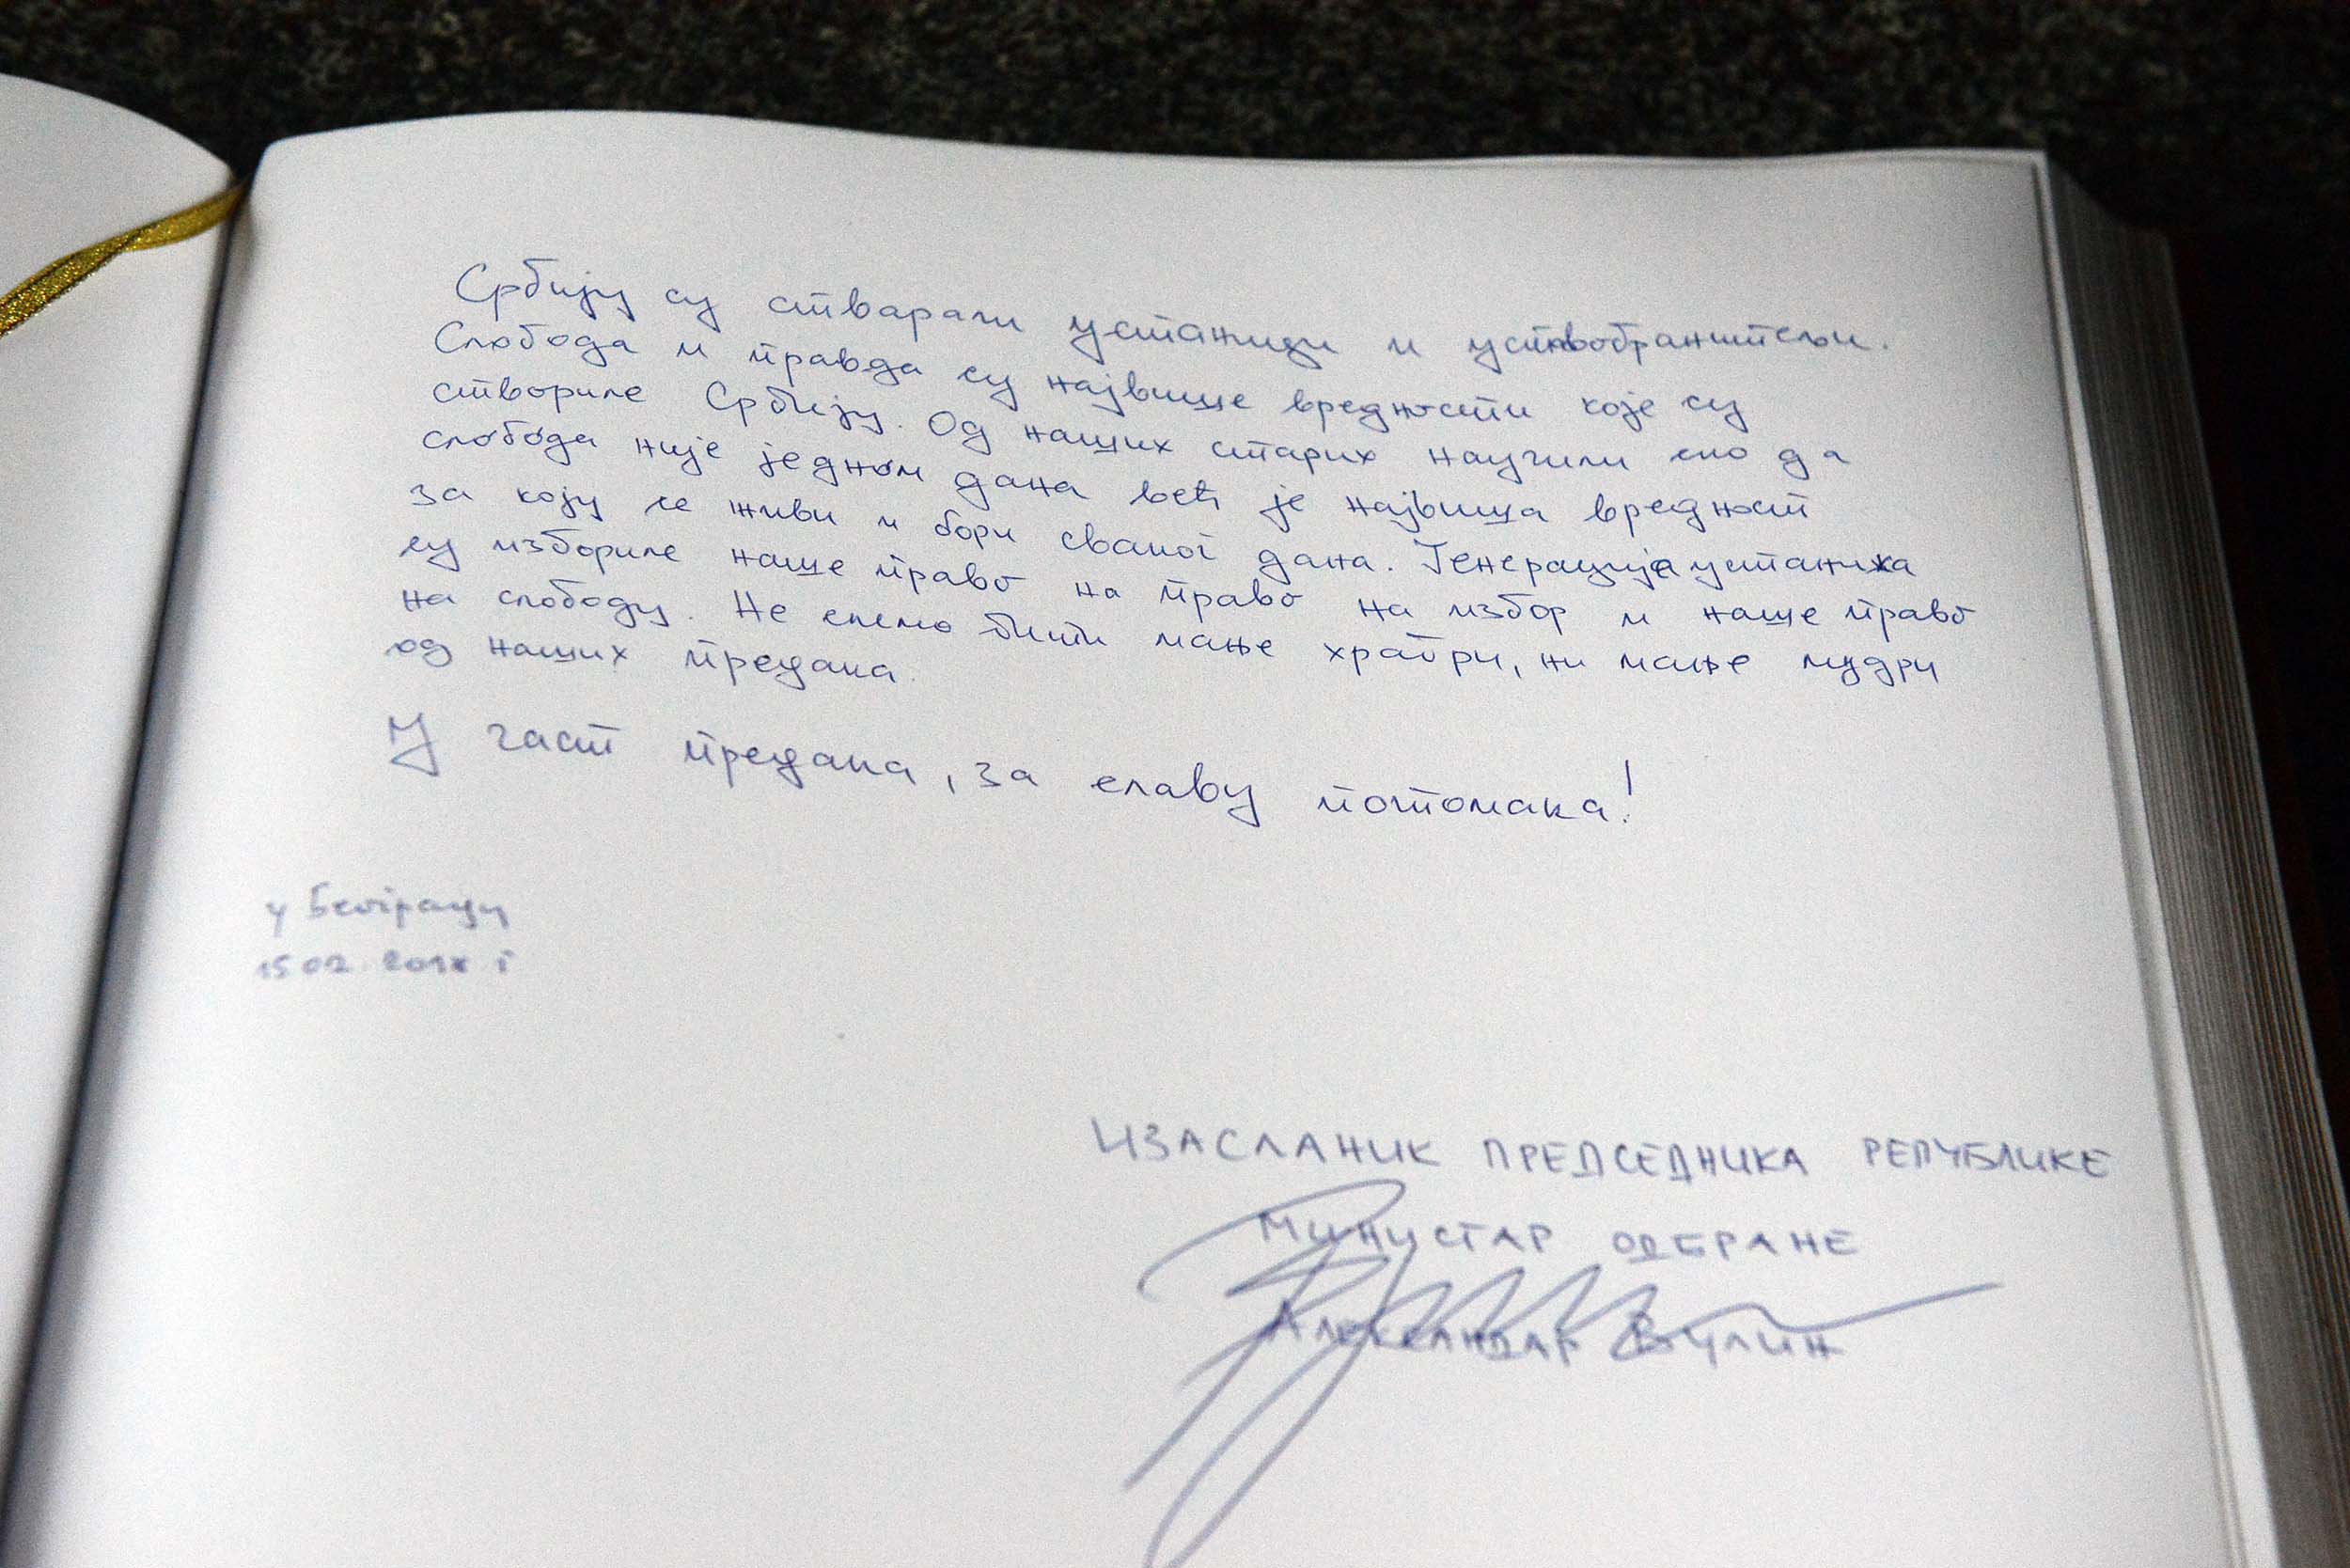 Србију су стварали устаници и уставобранитељи.
Слобода и правда су највише вредности које су
створиле Србију. Од наших старих научили смо да
слобода није једном дана већ је највиша вредност
за коју се живи и бори сваког дана. Генерација устаника
су избориле наше право на право на избор и наше право
на слободу. Не смемо бити мање храбри, ни мање мудри
од наших предака.
У част предака, за славу потомака!
у Београду
15 02. 2018 г
ИЗАСЛАНИК ПРЕДСЕДНИКА РЕПУБЛИКЕ
МИНИСТАР ОДБРАНЕ
АЛЕКСАНДАР ВУЛИН